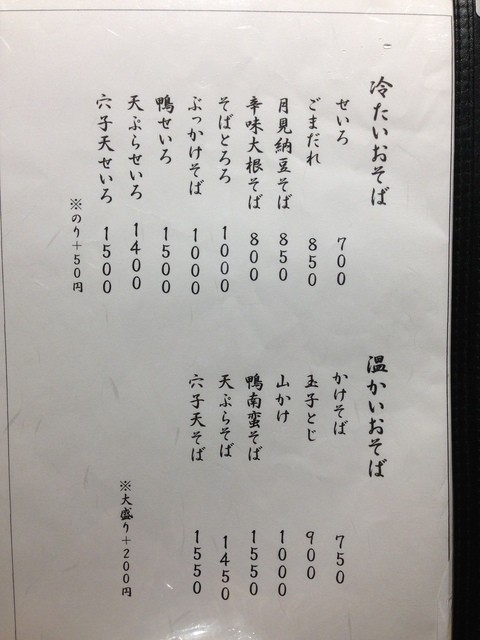 冷たいおそば
せいろ 700
ごまだれ 850
月見納豆そば 850
辛味大根そば 800
そばとろろ 1000
ぶっかけそば 1000
鴨せいろ 1500
天ぷらせいろ 1400
穴子天せいろ 1500
※のり+50円
温かいおそば
かけそば 750
玉子とじ 900
山かけ 1000
鴨南蛮そば 1550
天ぷらそば 1450
穴子天そば 1550
※大盛り+200円